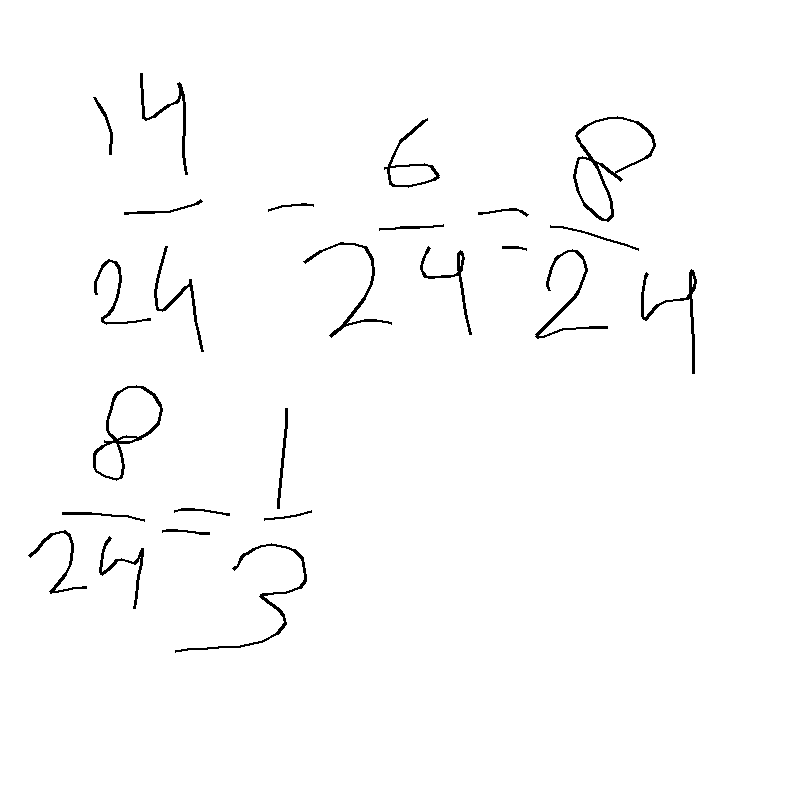 14/24 - 6/24 = 8/24
8/24 = 1/3